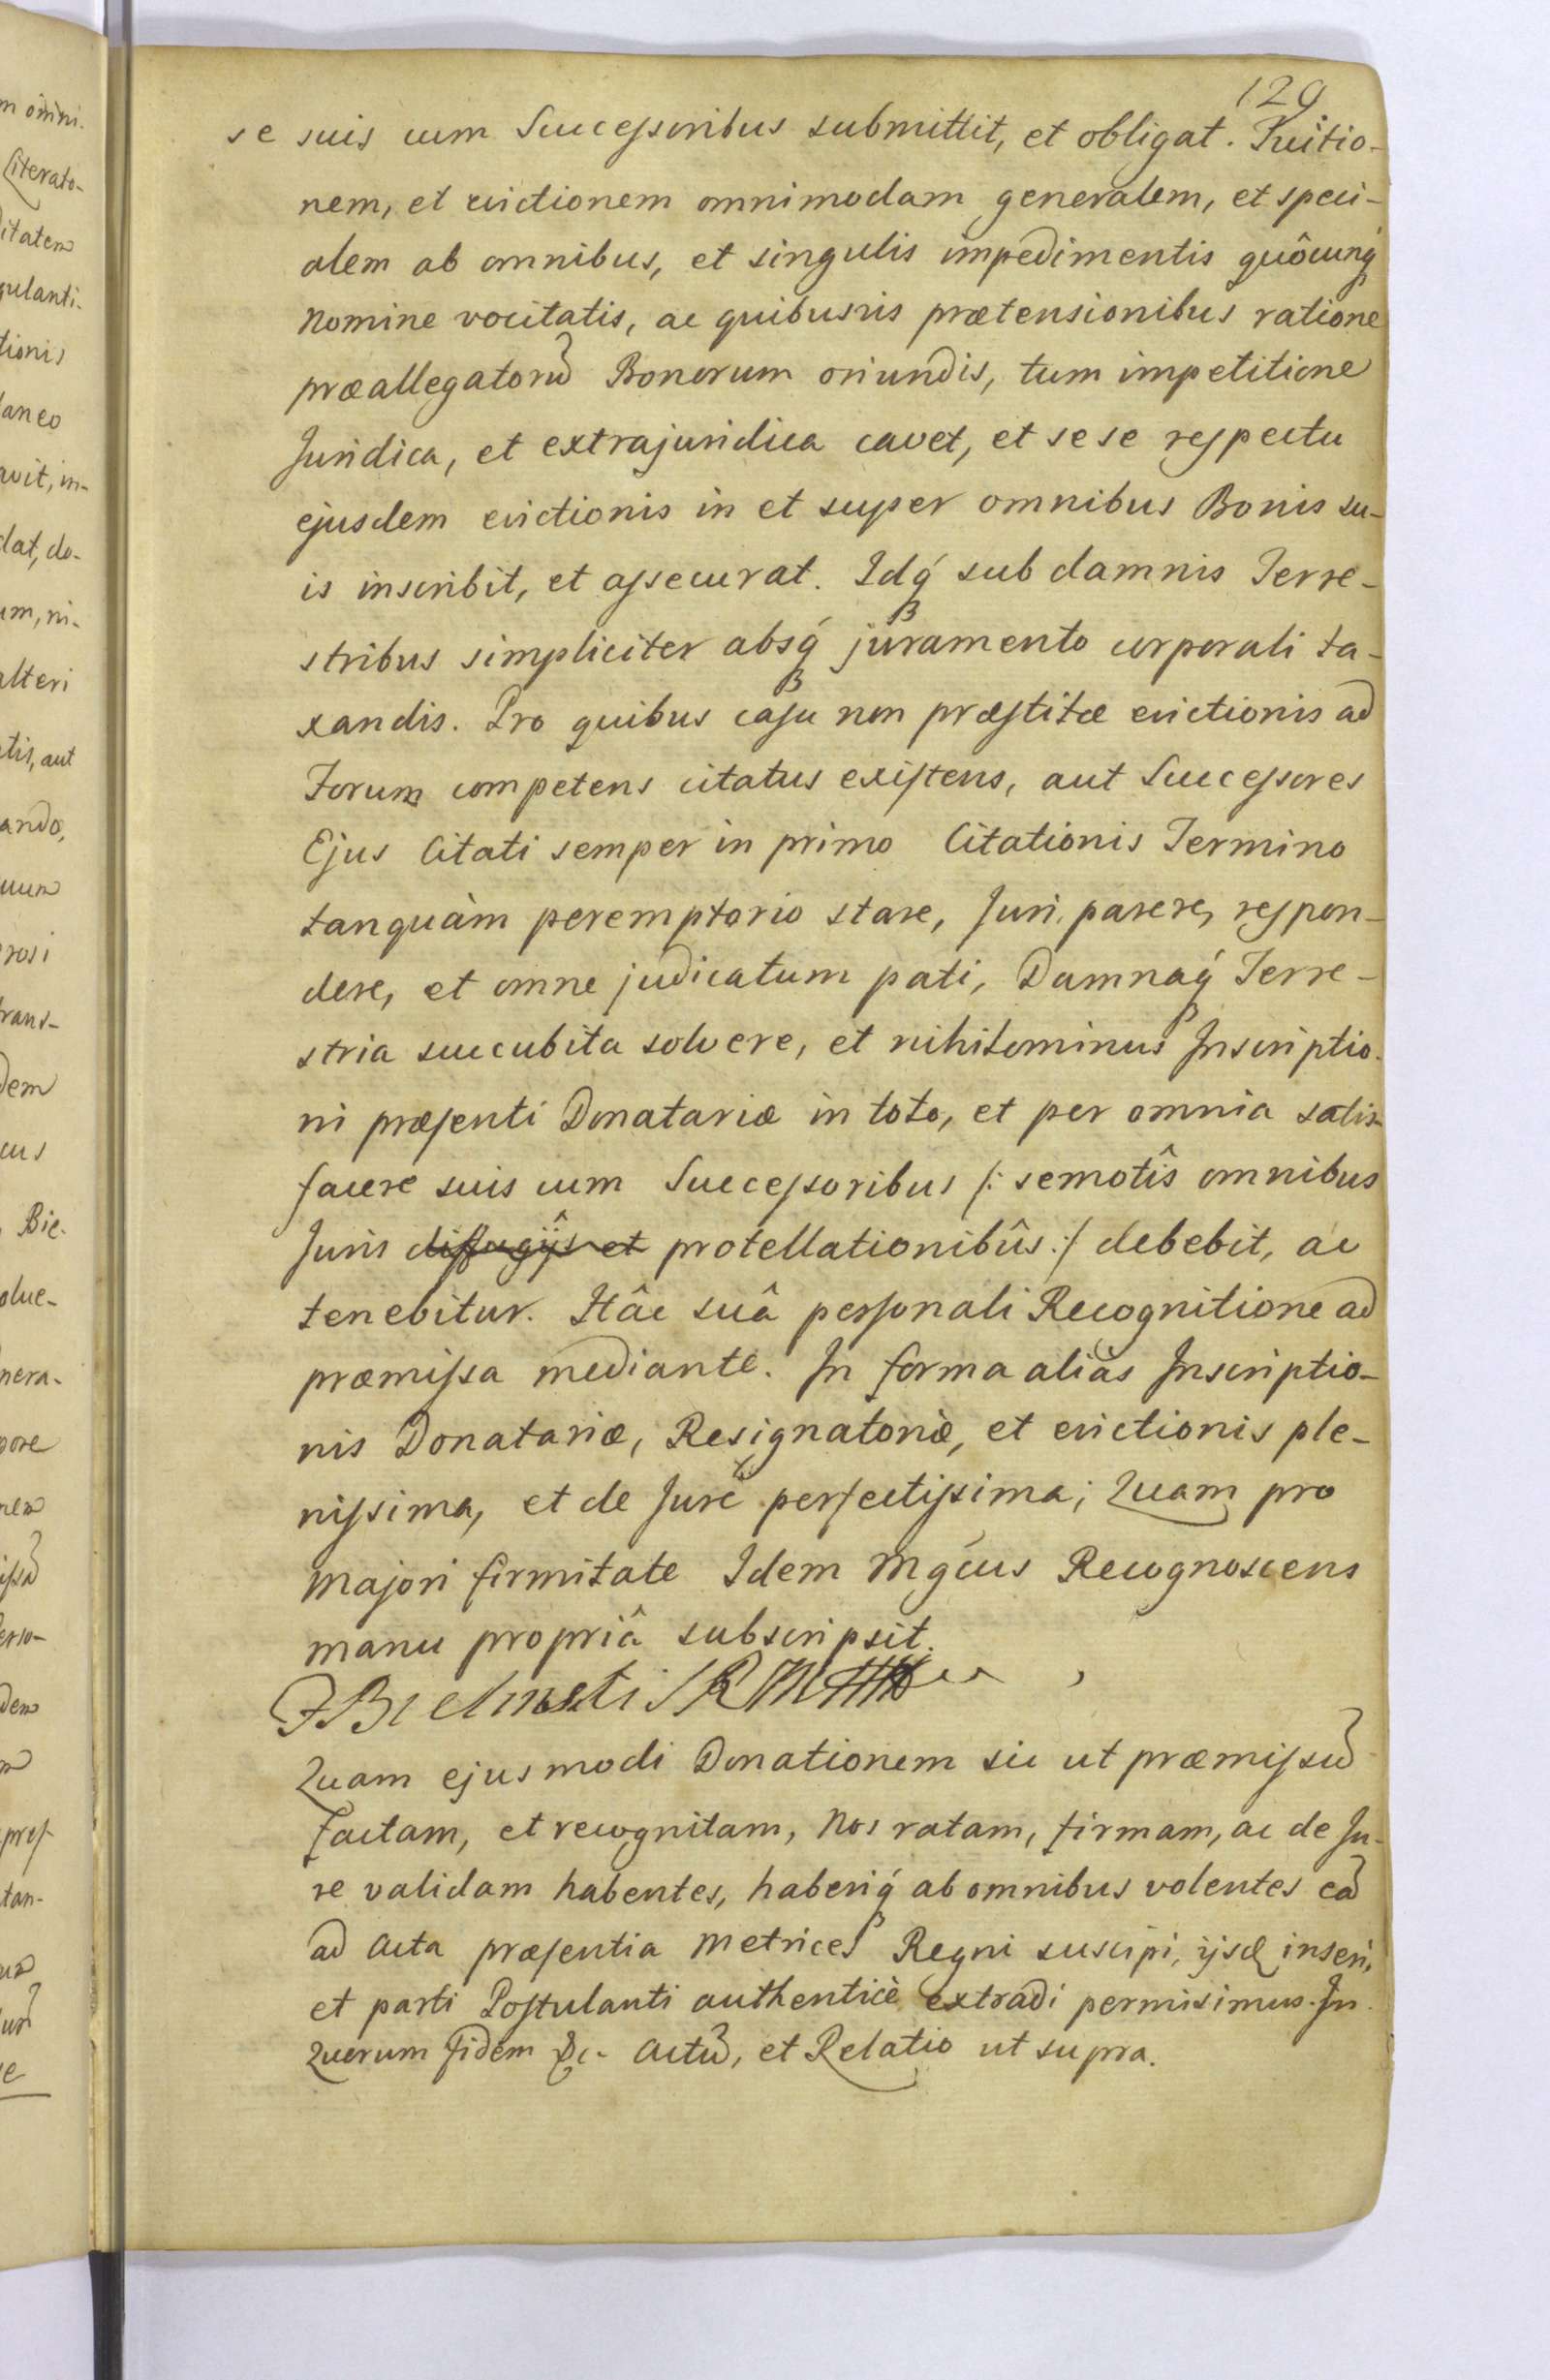 129
se suis cum Successoribus submittit, et obligat. Tuitio-
nem, et evictionem omnimodam generalem, et speci-
alem ab omnibus, et singulis impedimentis quôcunq́
Nomine vocitatis, ac quibusvis prætensionibus ratione
præallegatorū Bonorum oriundis, tum impetitione
Juridica, et extrajuridica cavet, et se se respectu
ejusdem evictionis in et super omnibus Bonis su-
is inscribit, et assecurat. Idq́ sub damnis Terre-
stribus simpliciter absq́ juramento corporali ta-
xandis. Pro quibus casu non præstitæ evictionis ad
Forum competens citatus existens, aut Successores
Ejus Citati semper in primo Citationis Termino
tanquàm peremptorio stare, Juri parere, respon-
dere, et omne judicatum pati, Damnaq́ Terre-
stria succubita solvere, et nihilominus Inscriptio-
ni præsenti Donatariæ in toto, et per omnia satis-
facere suis cum Successoribus /: semotîs omnibus
Juris diffugijs et protellationibûs :/ debebit, ac
tenebitur. Hâc suâ personali Recognitione ad
præmissa mediante. In forma aliàs Inscriptio-
nis Donatariæ, Resignatoriæ, et evictionis ple-
nissima, et de Jure perfectissima; Quam pro
majori firmitate Idem Mg̃cus Recognoscens
manu propriâ subscripsit.
Quam ejusmodi Donationem sic ut præmissū
factam, et recognitam, Nos ratam, firmam, ac de Ju-
re validam habentes, haberiq́ ab omnibus volentes eā
ad Acta præsentia Metrices Regni suscipi, ijsq̨ inseri,
et parti Postulanti authenticè extradi permisimus. In
Quorum fidem &c. Actū, et Relatio ut supra.